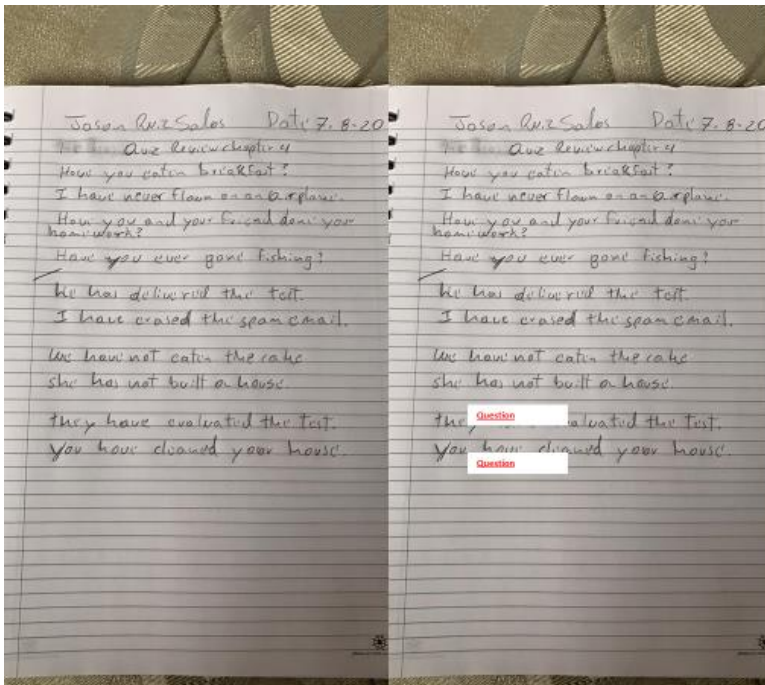 Jason Ruiz Salas Date 7-8-20
Quiz Review chapter 4
Have you eatin breakfast?
I have never flown on an airplane.
Have you and your friend done your
homework?
Have you ever gone fishing?
he has delivered the test.
I have erased the spam email.
we have not eatin the cake
she has not built a house.
they have evaluated the test.
You have cleaned your house.
Jason Ruiz Salas Date 7-8-20
Quiz Review chapter 4
Have you eatin breakfast?
I have never flown on an airplane.
Have you and your friend done your
homework?
Have you ever gone fishing?
he has delivered the test.
I have erased the spam email.
we have not eatin the cake
she has not built a house.
Question
the the test.
You have cleaned your house.
Question